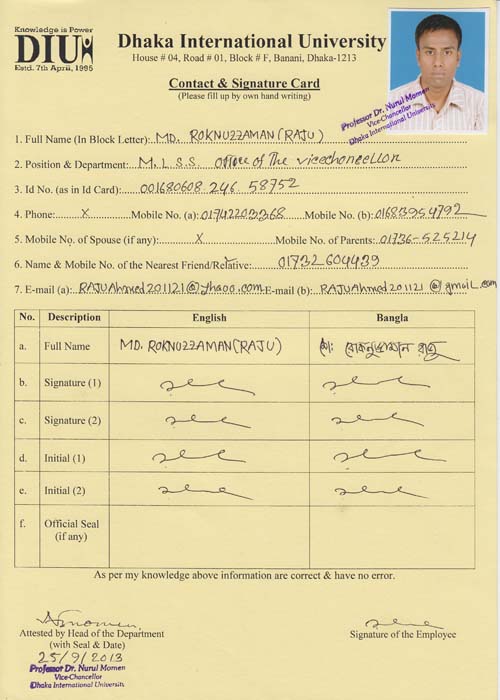 Knowledge is Power
DIU
Estd. 7th April, 1995
Dhaka International University
House # 04, Road # 01, Block # F, Banani, Dhaka-1213
Contact & Signature Card
(Please fill up by own hand writing)
Professor Dr. Nurul Momen
Vice-Chancellor
Dhaka International University
1. Full Name (In Block Letter): MD. ROKNUZZAMAN (RAJU)
2. Position & Department: M.L.S.S. office of The vicechancellor
3. Id No. (as in Id Card): 001680608 246 58752
4. Phone: X Mobile No. (a): 01742203368 Mobile No. (b): 01683954792
5. Mobile No. of Spouse (if any): X Mobile No. of Parents: 01736-525214
6. Name & Mobile No. of the Nearest Friend/Relative: 01732604439
7. E-mail (a): RAJUAhmed201121@yhaoo.com E-mail (b): RAJUAhmed201121@gmail.com
No. Description English Bangla
a. Full Name MD. ROKNUZZAMAN (RAJU) মো: রোকনুজ্জামান রাজু
b. Signature (1)
c. Signature (2)
d. Initial (1)
e. Initial (2)
f. Official Seal
(if any)
As per my knowledge above information are correct & have no error.
Attested by Head of the Department
(with Seal & Date)
Signature of the Employee
25/9/2013
Professor Dr. Nurul Momen
Vice-Chancellor
Dhaka International University